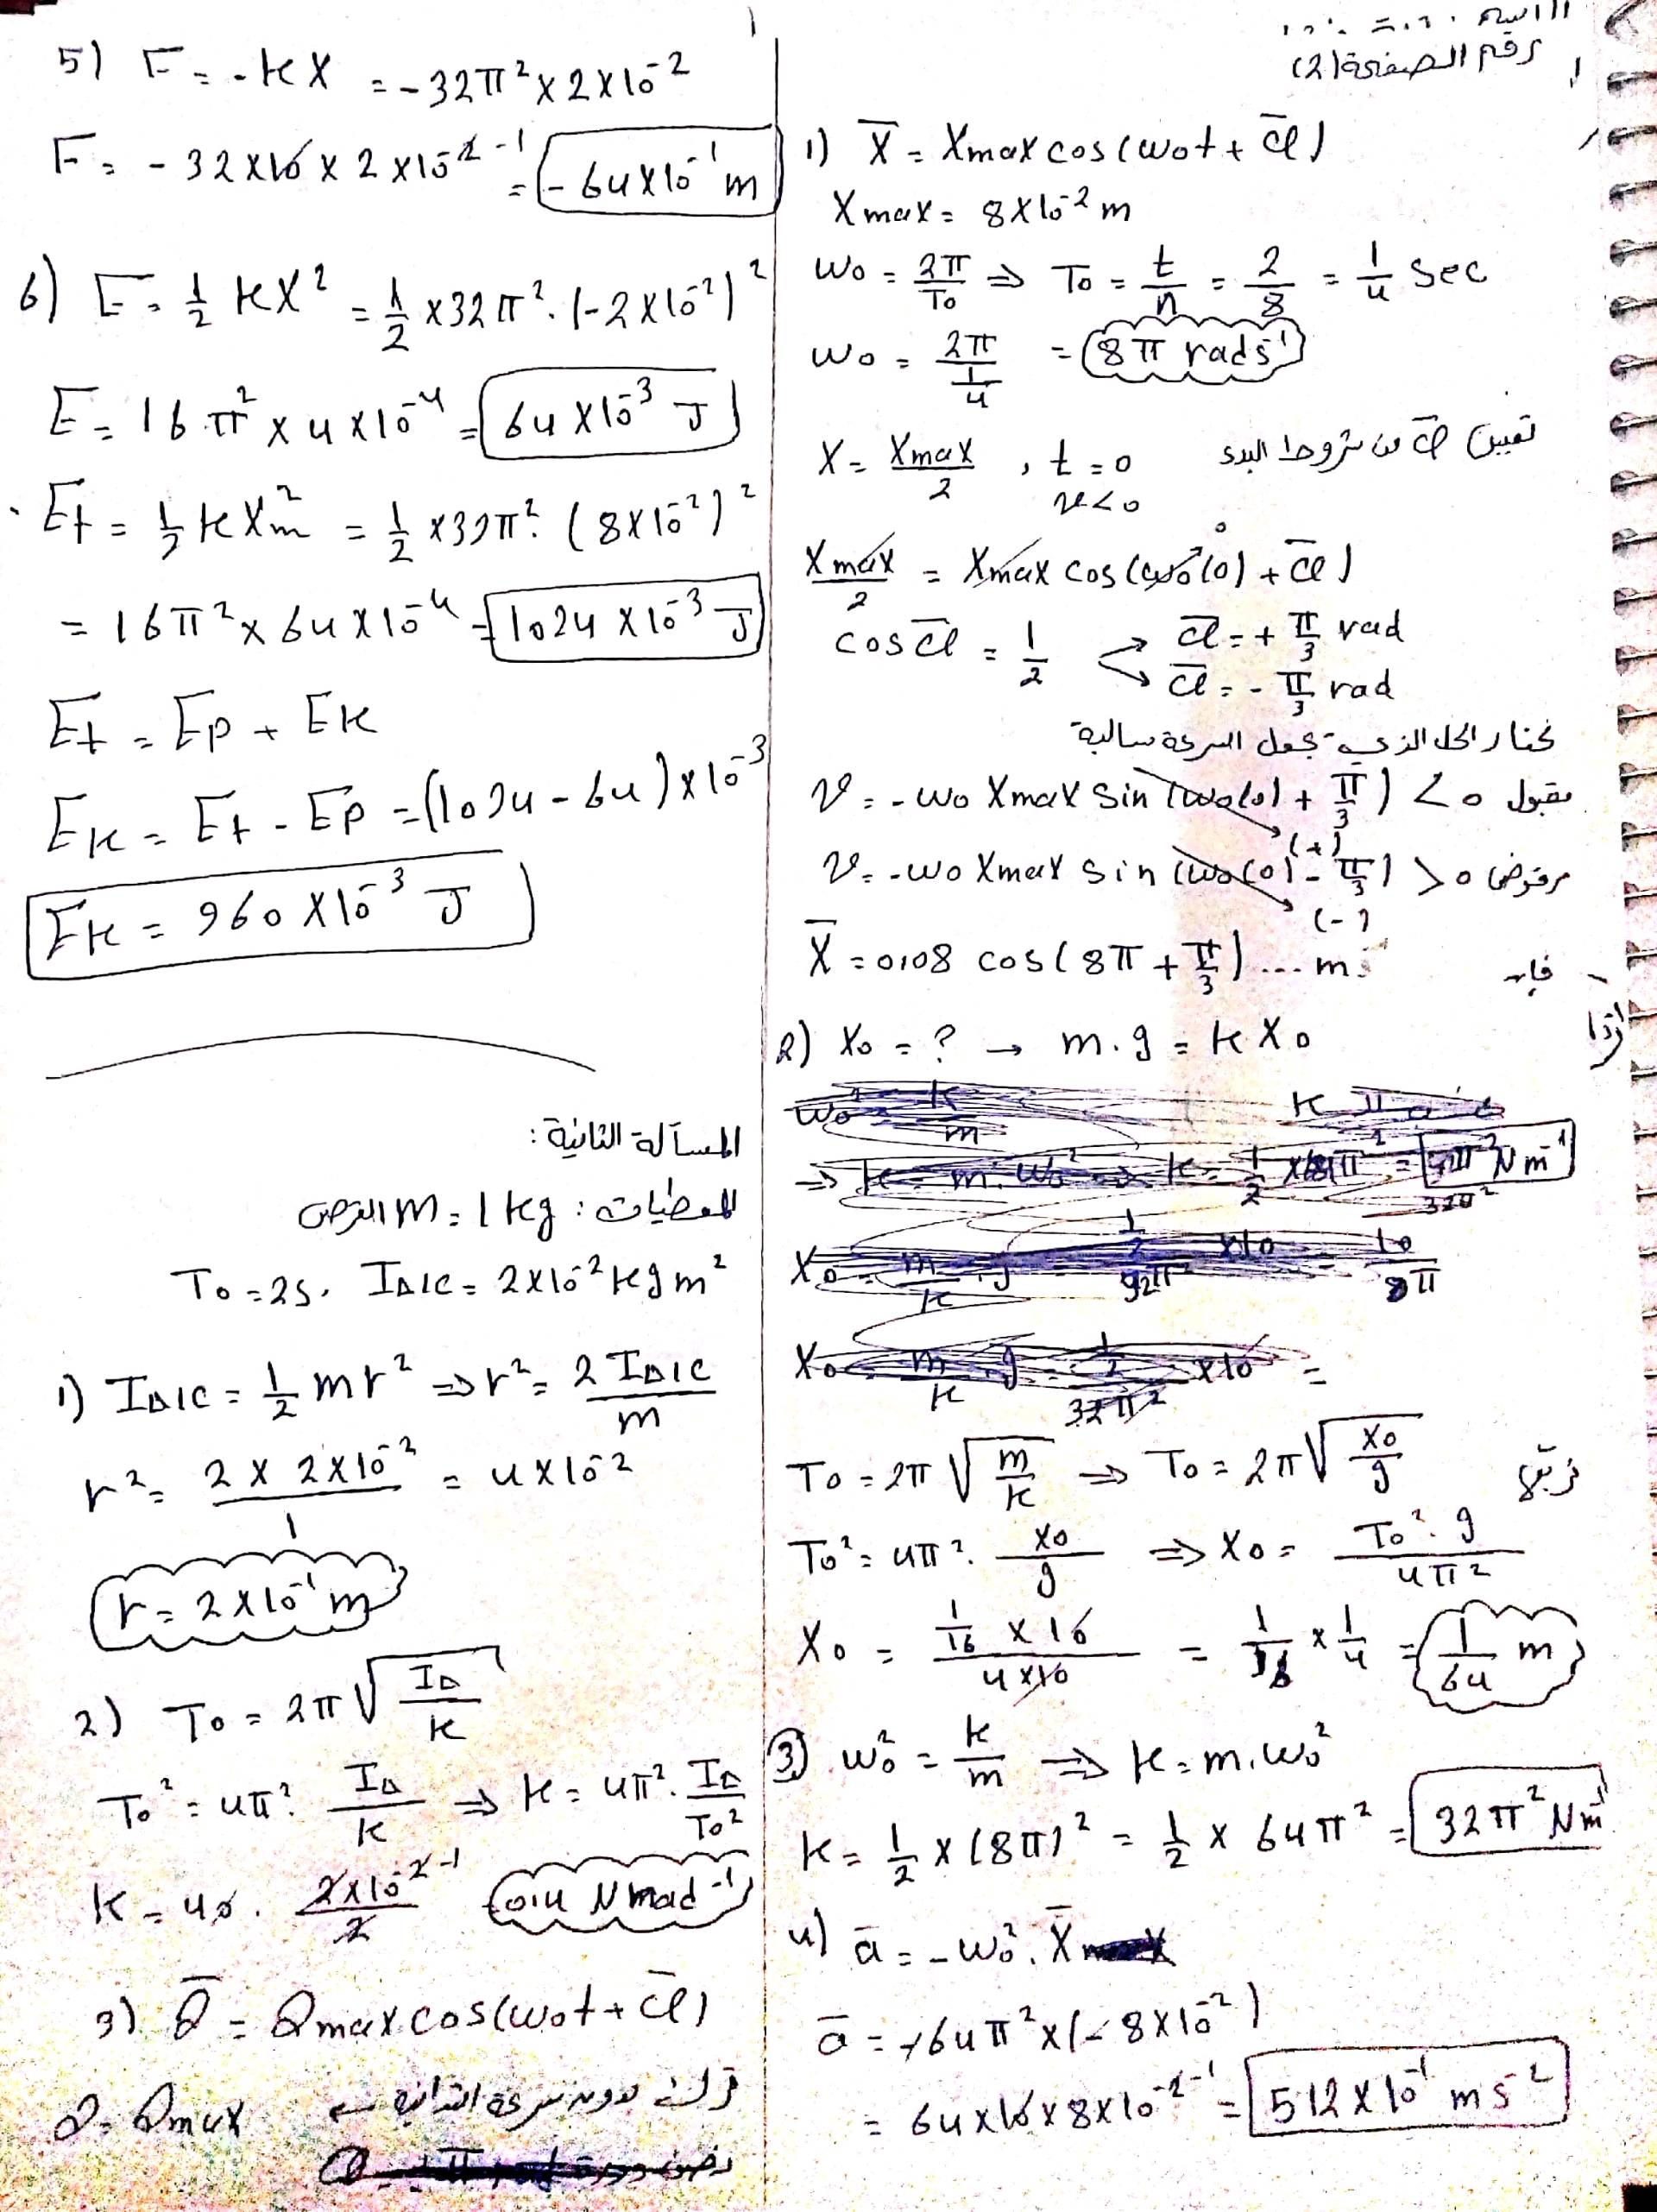 رقم الصفحة (2)
1) X̄ = Xmax cos(ω0t + φ̄)
Xmax = 8×10⁻² m
ω0 = 2π/T0 ⇒ T0 = t/n = 2/8 = 1/4 sec
ω0 = 2π/(1/4) = 8π rad s⁻¹
تعيين φ̄ من شروط البدء X = Xmax/2 , t = 0
v < 0
Xmax/2 = Xmax cos(ω0(0) + φ̄)
cos φ̄ = 1/2 φ̄ = + π/3 rad
φ̄ = - π/3 rad
نختار الحل الذي يجعل السرعة سالبة
v = -ω0 Xmax sin(ω0(0) + π/3) < 0 مقبول
(+)
v = -ω0 Xmax sin(ω0(0) - π/3) > 0 مرفوض
(-)
X̄ = 0,08 cos(8π + π/3) ... m
2) X0 = ? → m.g = k X0
T0 = 2π √(m/k) ⇒ T0 = 2π √(X0/g) نربع
T0² = 4π² . X0/g ⇒ X0 = T0² . g / 4π²
X0 = (1/16 × 10)/(4×10) = 1/16 × 1/4 = 1/64 m
3) ω0² = k/m ⇒ k = m.ω0²
k = 1/2 × (8π)² = 1/2 × 64π² = 32π² N m⁻¹
4) ā = -ω0² . X̄
ā = -64π² × (-8×10⁻²)
= 64×10×8×10⁻² ⁻¹ = 512×10⁻¹ m s⁻²
5) F = -kX = -32π² × 2×10⁻²
F = -32×10 × 2×10⁻² ⁻¹ = -64×10⁻¹ m
6) E = 1/2 kX² = 1/2 × 32π² . (-2×10⁻²)²
E = 16π² × 4×10⁻⁴ = 64×10⁻³ J
Et = 1/2 k Xm² = 1/2 × 32π² . (8×10⁻²)²
= 16π² × 64×10⁻⁴ = 1024×10⁻³ J
Et = Ep + Ek
Ek = Et - Ep = (1024 - 64)×10⁻³
Ek = 960×10⁻³ J
المسألة الثانية :
المعطيات : m = 1 kg القرص
T0 = 2s , IΔ/c = 2×10⁻² kg m²
1) IΔ/c = 1/2 m r² ⇒ r² = 2 IΔ/c / m
r² = 2 × 2×10⁻² / 1 = 4×10⁻²
r = 2×10⁻¹ m
2) T0 = 2π √(IΔ/k)
T0² = 4π² . IΔ/k ⇒ k = 4π² . IΔ/T0²
k = 40 . 2×10⁻² ⁻¹/2 0,4 N m rad⁻¹
3) θ̄ = θmax cos(ω0t + φ̄)
θ = θmax ترك دون سرعة ابتدائية ←
نصف دورة